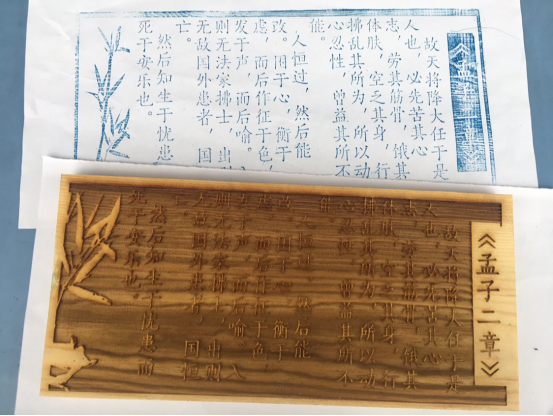 《孟子
故天将降大任于是
人也，必先苦其心
志，劳其筋骨，饿其
体肤，空乏其身，行
拂乱其所为，所以动
心忍性，曾益其所不
能。
人恒过，然后能
改。困于心，衡于
虑，而后作征于色，
发于声，而后喻。
则无法家拂士，出
无敌国外患者，国
亡。
然后知生于忧患
死于安乐也。
《孟子二章》
故天将降大任于是
人也，必先苦其心
志，劳其筋骨，饿其
体肤，空乏其身，行
拂乱其所为，所以动
心忍性，曾益其所不
能
人恒过，然后能
改。困于心，衡于
虑，而后作征于色，
发于声，而后喻 入
则无法家拂士，出则
无敌国外患者，国恒
亡。
然后知生于忧患而
死于安乐也。